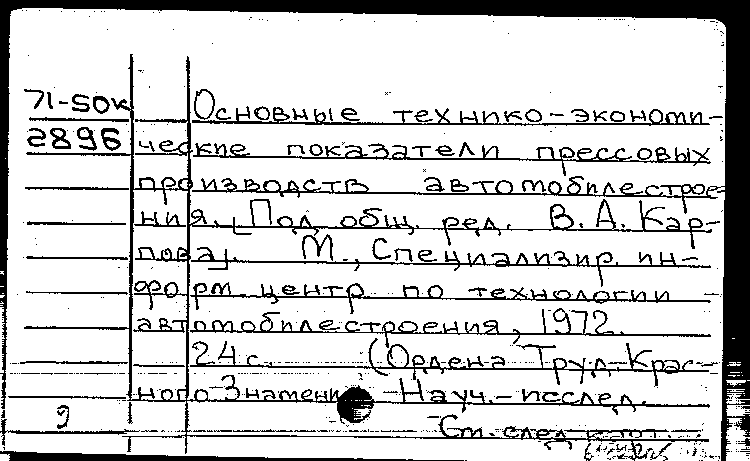 71-50к Основные технико-экономи-
2896 ческие показатели прессовых
производств автомобилестрое-
ния. [Под общ. ред. В. А. Кар-
пова]. М., Специализир. ин-
форм. центр по технологии
автомобилестроения, 1972.
24 с. (Ордена Труд. Крас-
ного Знамени Науч.-исслед.
9 См. след.